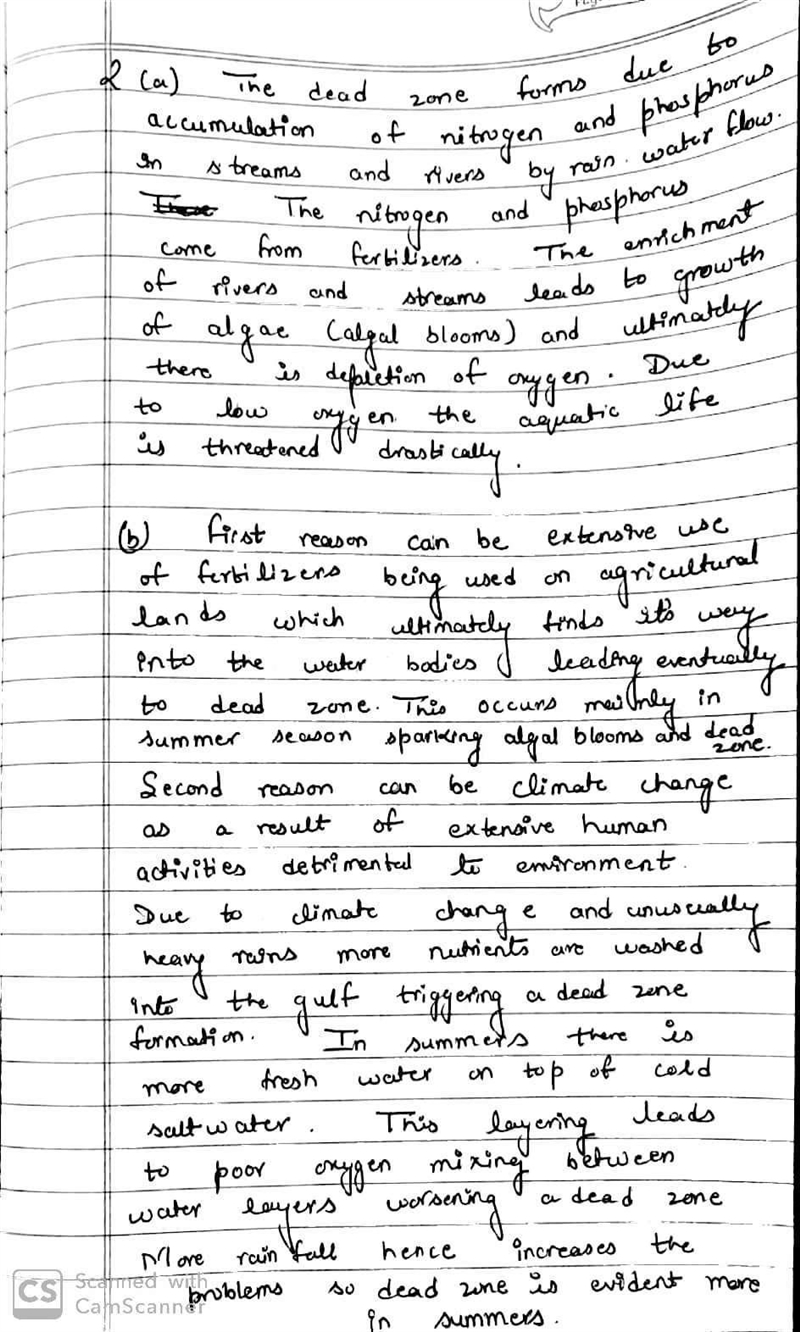 2 (a) The dead zone forms due to
accumulation of nitrogen and phosphorus
in streams and rivers by rain water flow.
These The nitrogen and phosphorus
come from fertilizers. The enrichment
of rivers and streams leads to growth
of algae (algal blooms) and ultimately
there is depletion of oxygen. Due
to low oxygen the aquatic life
is threatened drastically.
(b) First reason can be extensive use
of fertilizers being used on agricultural
lands which ultimately finds it's way
into the water bodies leading eventually
to dead zone. This occurs mainly in
summer season sparking algal blooms and dead
zone.
Second reason can be climate change
as a result of extensive human
activities detrimental to environment.
Due to climate change and unusually
heavy rains more nutrients are washed
into the gulf triggering a dead zone
formation. In summers there is
more fresh water on top of cold
saltwater. This layering leads
to poor oxygen mixing between
water layers worsening a dead zone
More rainfall hence increases the
problems so dead zone is evident more
in summers.
CS Scanned with
CamScanner